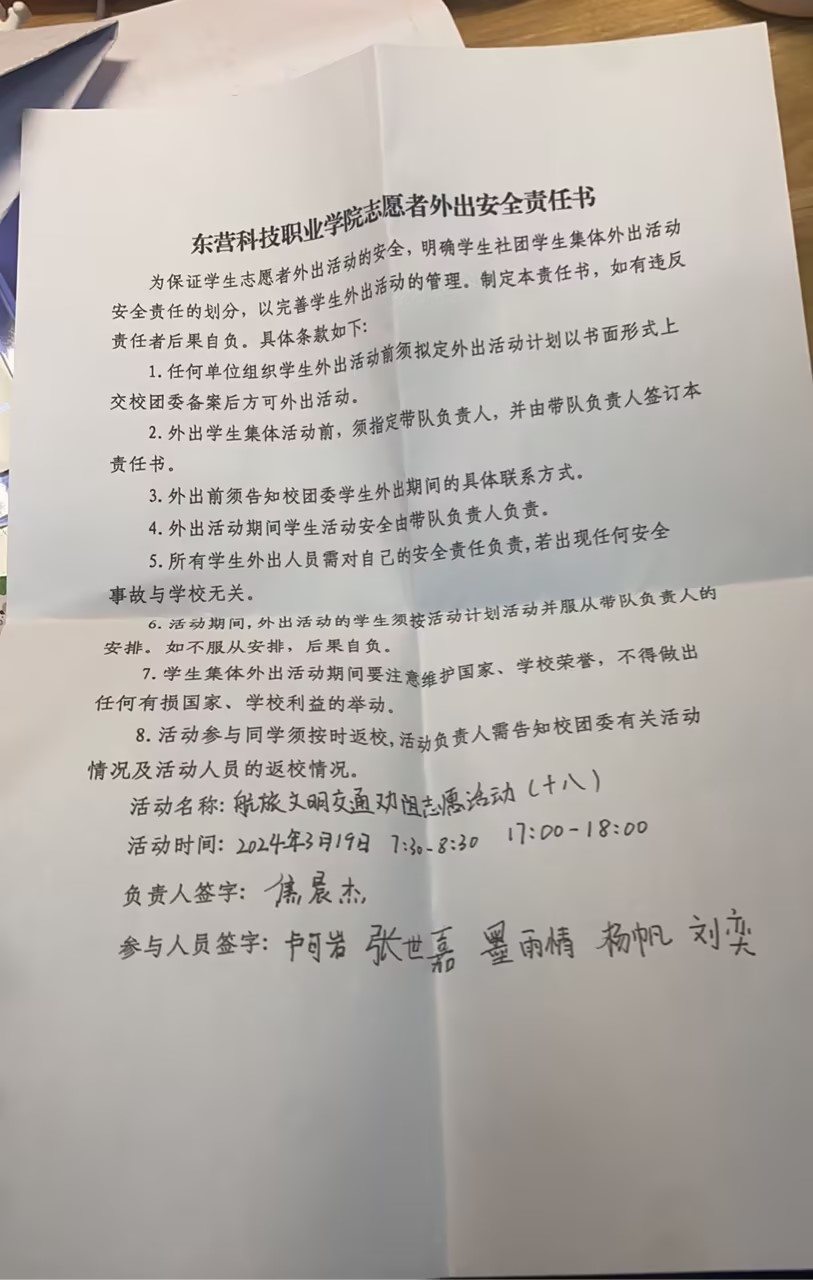 东营科技职业学院志愿者外出安全责任书
为保证学生志愿者外出活动的安全，明确学生社团学生集体外出活动
安全责任的划分，以完善学生外出活动的管理。制定本责任书，如有违反
责任者后果自负。具体条款如下:
1. 任何单位组织学生外出活动前须拟定外出活动计划以书面形式上
交校团委备案后方可外出活动。
2. 外出学生集体活动前，须指定带队负责人，并由带队负责人签订本
责任书。
3. 外出前须告知校团委学生外出期间的具体联系方式。
4. 外出活动期间学生活动安全由带队负责人负责。
5. 所有学生外出人员需对自己的安全责任负责,若出现任何安全
事故与学校无关。
6. 活动期间,外出活动的学生须按活动计划活动并服从带队负责人的
安排。如不服从安排，后果自负。
7. 学生集体外出活动期间要注意维护国家、学校荣誉，不得做出
任何有损国家、学校利益的举动。
8. 活动参与同学须按时返校,活动负责人需告知校团委有关活动
情况及活动人员的返校情况。
活动名称: 航旅文明交通劝阻志愿活动（十八）
活动时间: 2024年3月19日 7:30-8:30 17:00-18:00
负责人签字: 焦晨杰
参与人员签字: 卢可岩 张世嘉 墨雨情 杨帆 刘奕